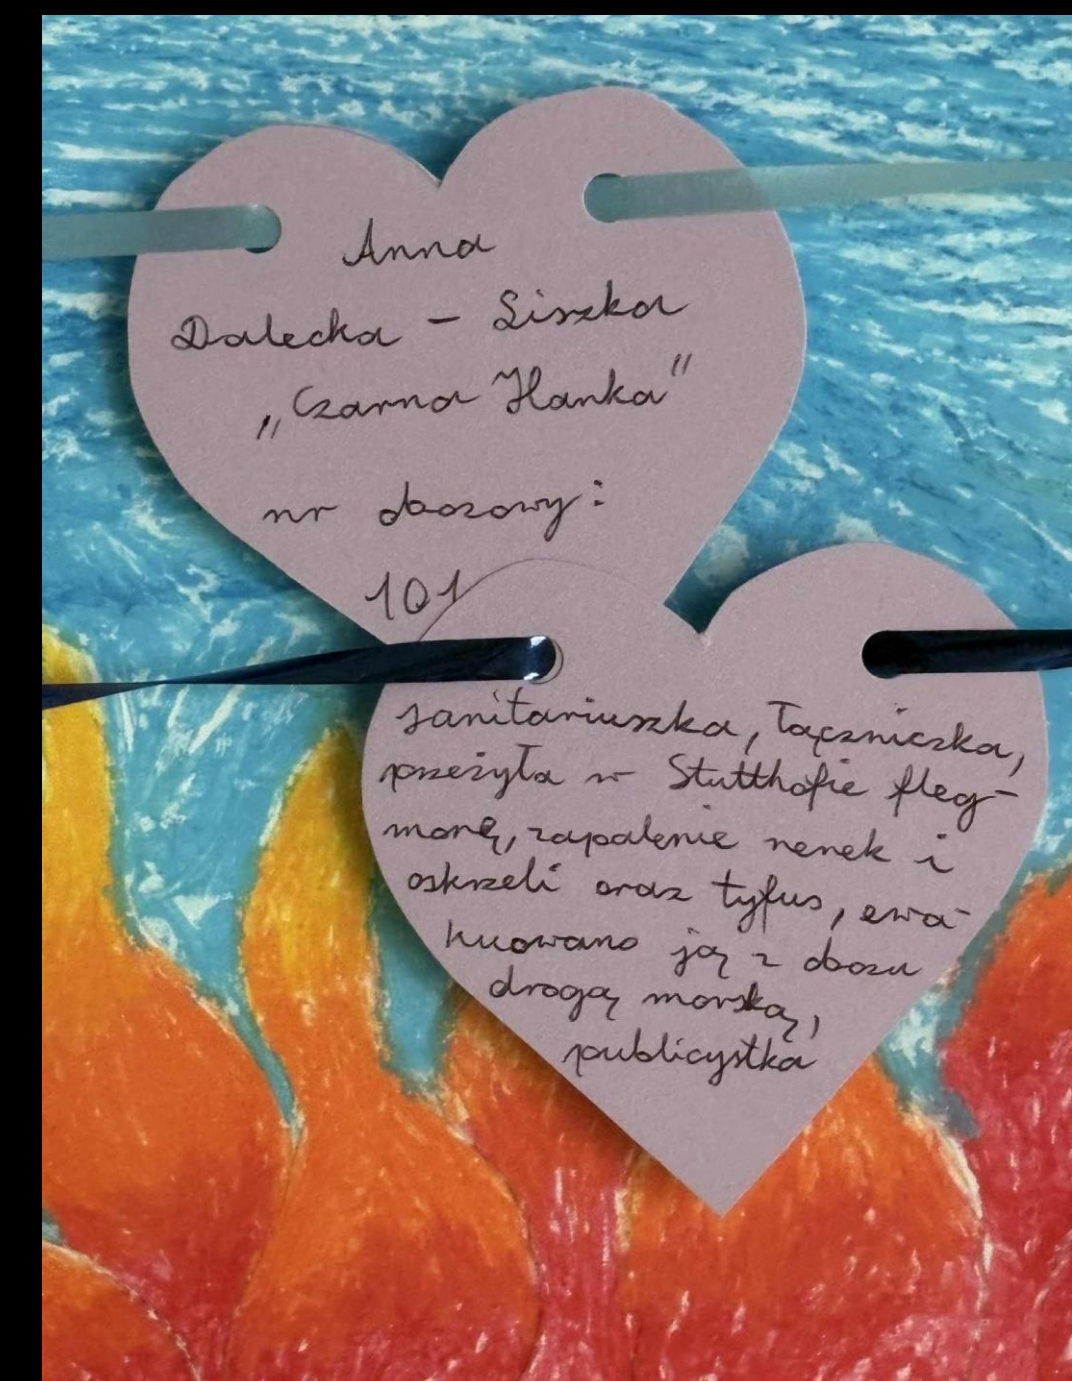 Anna
Dalecka - Liszka
„Czarna Hanka"
nr obozowy:
101
sanitariuszka, łączniczka,
przeżyła w Stutthofie fleg-
monę, zapalenie nerek i
oskrzeli oraz tyfus, ewa-
kuowano ją z obozu
drogą morską,
publicystka